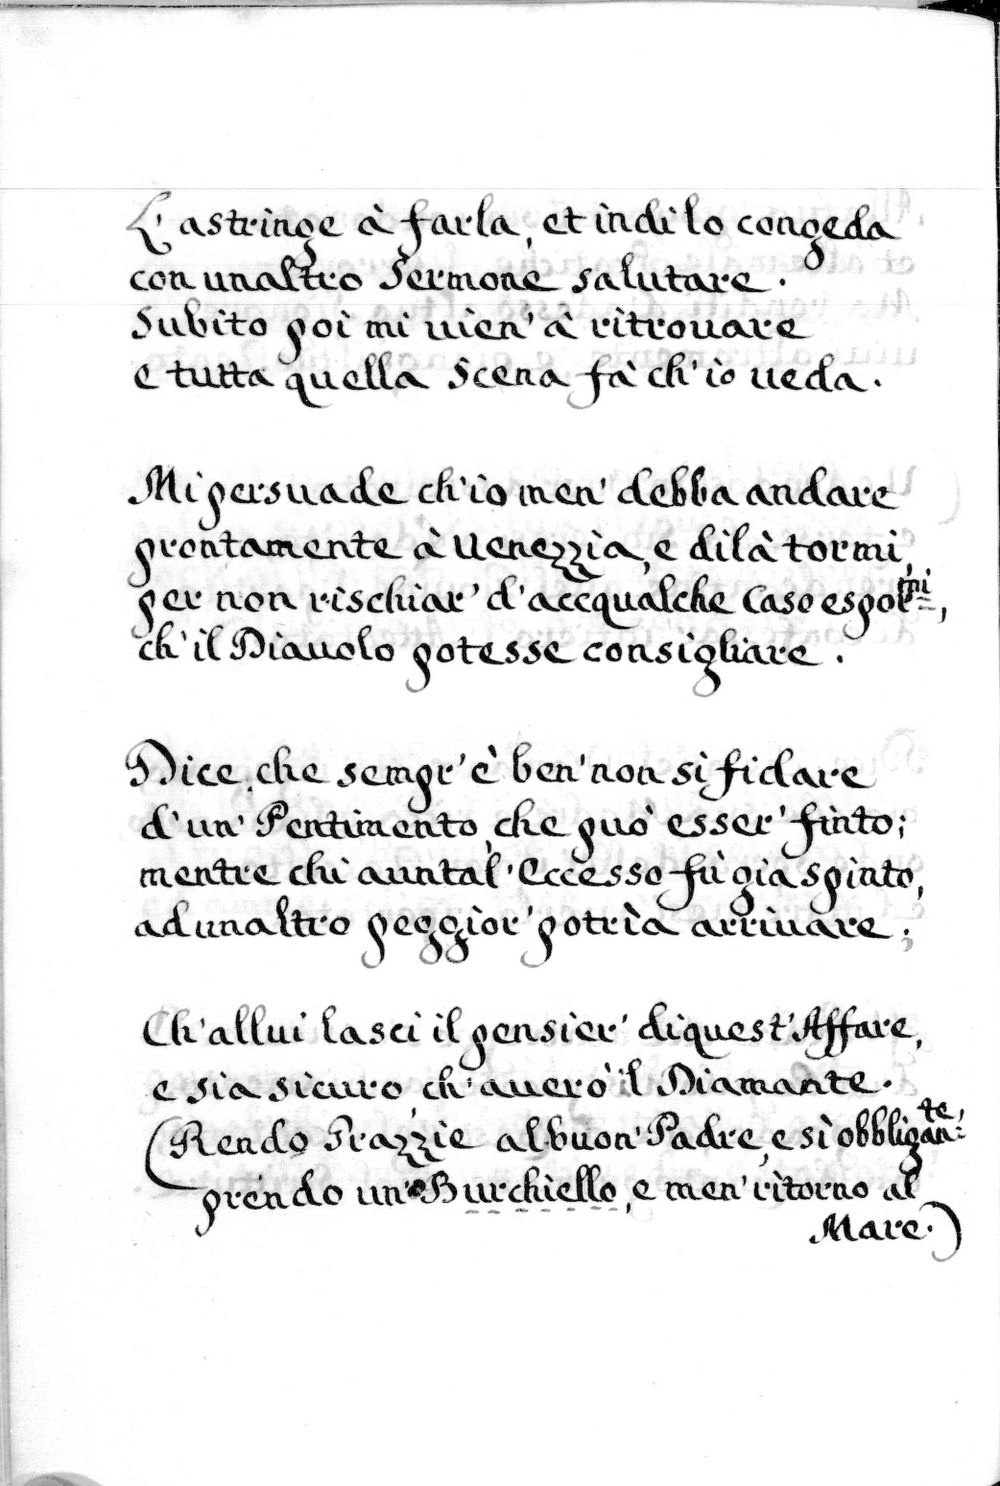 L'astringe à farla, et indi lo congeda
con unaltro Sermone salutare.
Subito poi mi uien' à ritrouare
e tutta quella Scena fà ch'io ueda.
Mi persuade ch'io men' debba andare
prontamente à Uenezzia, e dilà tormi,
per non rischiar' d'accqualche Caso espormi,
ch'il Diauolo potesse consigliare.
Dice, che sempr' è ben' non si fidare
d'un' Pentimento, che può esser' finto;
mentre chi auntal' Eccesso fù già spinto,
ad unaltro peggior' potrìa arriuare;
Ch'allui lasci il pensier' diquest' Affare,
e sia sicuro, ch'auerò il Diamante.
(Rendo Grazzie al buon' Padre, e sì obbligante,
prendo un' Burchiello, e men' ritorno al
Mare.)